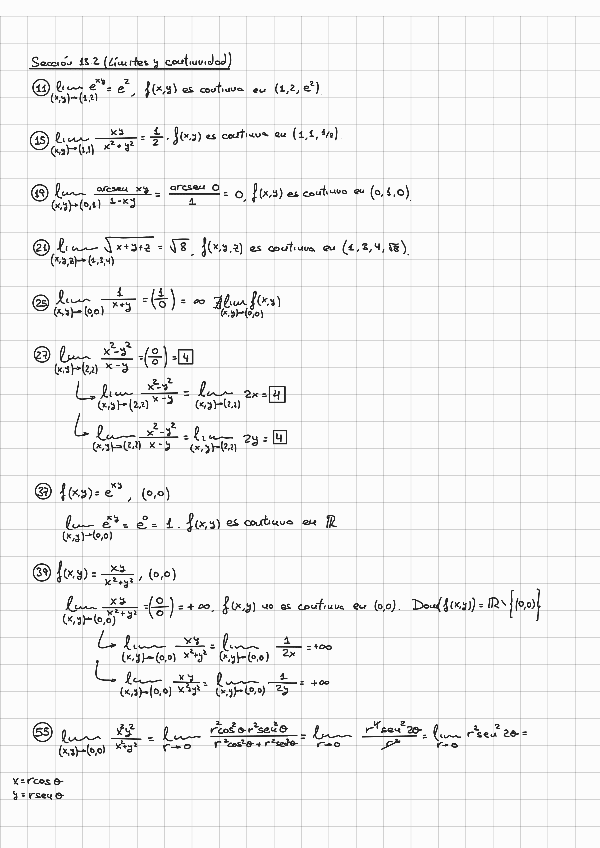 Sección 13.2 (Límites y continuidad)
(11) lim_{(x,y)→(1,2)} e^{xy} = e^2, f(x,y) es continua en (1,2,e^2)
(15) lim_{(x,y)→(1,1)} xy/(x^2+y^2) = 1/2. f(x,y) es continua en (1,1,1/2)
(19) lim_{(x,y)→(0,1)} (arcsen xy)/(1-xy) = (arcsen 0)/1 = 0, f(x,y) es continua en (0,1,0).
(21) lim_{(x,y,z)→(1,3,4)} √(x+y+z) = √8, f(x,y,z) es continua en (1,3,4,√8).
(25) lim_{(x,y)→(0,0)} 1/(x+y) = (1/0) = ∞ ∄ lim_{(x,y)→(0,0)} f(x,y)
(27) lim_{(x,y)→(2,2)} (x^2-y^2)/(x-y) = (0/0) = 4
↳ lim_{(x,y)→(2,2)} (x^2-y^2)/(x-y) = lim_{(x,y)→(2,2)} 2x = 4
↳ lim_{(x,y)→(2,2)} (x^2-y^2)/(x-y) = lim_{(x,y)→(2,2)} 2y = 4
(37) f(x,y) = e^{xy}, (0,0)
lim_{(x,y)→(0,0)} e^{xy} = e^0 = 1. f(x,y) es continua en ℝ
(39) f(x,y) = xy/(x^2+y^2), (0,0)
lim_{(x,y)→(0,0)} xy/(x^2+y^2) = (0/0) = +∞, f(x,y) no es continua en (0,0). Dom(f(x,y)) = ℝ\{(0,0)}
↳ lim_{(x,y)→(0,0)} xy/(x^2+y^2) = lim_{(x,y)→(0,0)} 1/(2x) = +∞
↳ lim_{(x,y)→(0,0)} xy/(x^2+y^2) = lim_{(x,y)→(0,0)} 1/(2y) = +∞
(55) lim_{(x,y)→(0,0)} x^2y^2/(x^2+y^2) = lim_{r→0} (r^2cos^2θ r^2sen^2θ)/(r^2cos^2θ+r^2sen^2θ) = lim_{r→0} (r^4 sen^2 2θ)/r^2 = lim_{r→0} r^2 sen^2 2θ =
x = r cos θ
y = r sen θ